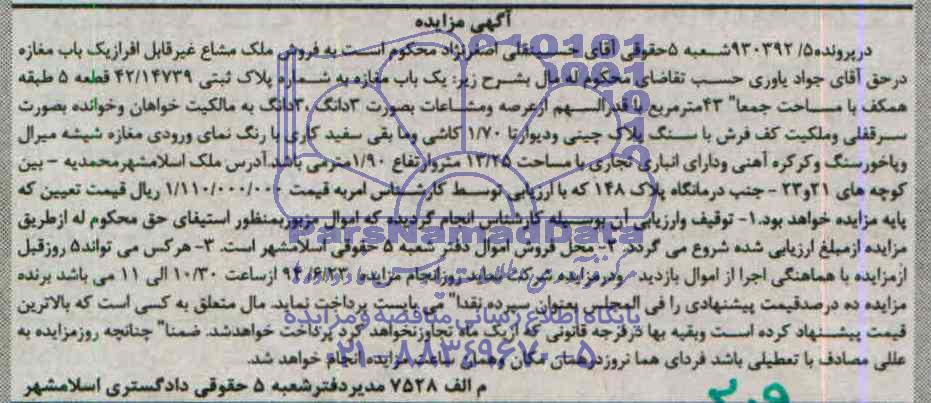 آگهی مزایده
در پرونده ۵/ ۹۳۰۳۹۲ شعبه ۵ حقوقی آقای اصغرنژاد محکوم است به فروش ملک مشاع غیرقابل افراز یک باب مغازه
در حق آقای جواد یاوری حسب تقاضای محکوم له مال بشرح زیر: یک باب مغازه به شماره پلاک ثبتی ۴۲/۱۴۷۳۹ قطعه ۵ طبقه
همکف با مساحت جمعا" ۴۳ مترمربع با قدرالسهم از عرصه ومشاعات بصورت ۳دانگ ،۳دانگ به مالکیت خواهان وخوانده بصورت
سرقفلی وملکیت کف فرش با سنگ پلاک چینی ودیوارتا ۱/۷۰ کاشی وما بقی سفید کاری با رنگ نمای ورودی مغازه شیشه میرال
وپاخورسنگ وکرکره آهنی ودارای انباری تجاری با مساحت ۱۳/۲۵ متروارتفاع ۱/۹۰متر می باشد آدرس ملک اسلامشهرمحمدیه - بین
کوچه های ۲۱و۲۳ - جنب درمانگاه پلاک ۱۴۸ که با ارزیابی توسط کارشناس امربه قیمت ۱/۱۱۰/۰۰۰/۰۰۰ ریال قیمت تعیین که
پایه مزایده خواهد بود.۱- توقیف وارزیابی آن بوسیله کارشناس انجام گردیده که اموال مزبوربمنظور استیفای حق محکوم له ازطریق
مزایده ازمبلغ ارزیابی شده شروع می گردد ۲- محل فروش اموال دفتر شعبه ۵ حقوقی اسلامشهر است. ۳- هرکس می تواند۵ روزقبل
ازمزایده با هماهنگی اجرا از اموال بازدید ودرمزایده شرکت نماید روزانجام مزایده ۹۴/۶/۲۳ ازساعت ۱۰/۳۰ الی ۱۱ می باشد برنده
مزایده ده درصدقیمت پیشنهادی را فی المجلس بعنوان سپرده نقدا" می بایست پرداخت نماید. مال متعلق به کسی است که بالاترین
قیمت پیشنهاد کرده است وبقیه بها درفرجه قانونی که ازیک ماه تجاوزنخواهد کرد پرداخت خواهدشد. ضمنا" چنانچه روزمزایده به
عللی مصادف با تعطیلی باشد فردای هما نروزدرهمان مکان وهمان ساعت مزایده انجام خواهد شد.
م الف ۷۵۲۸ مدیردفترشعبه ۵ حقوقی دادگستری اسلامشهر
ParsNamadData
پایگاه اطلاع رسانی مناقصه و مزایده
۰۲۱-۸۸۳۴۹۶۷۰-۵